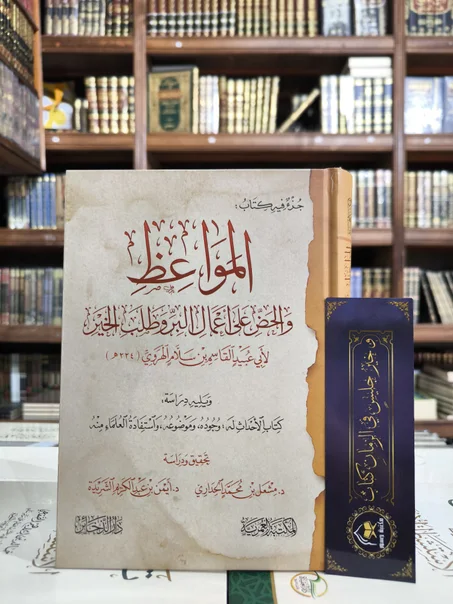 جُزْءٌ فِيهِ كِتَابُ:
المَوَاعِظِ
وَالحَضِّ عَلَى أَعْمَالِ البِرِّ وَطَلَبِ الخَيْرِ
لِأَبِي عُبَيْدٍ القَاسِمِ بْنِ سَلَّامٍ الهَرَوِيِّ (٢٢٤هـ)
وَيَلِيهِ دِرَاسَة:
كِتَابُ الأَحْدَاثِ لَهُ؛ وُجُودُهُ، وَمَوْضُوعُهُ، وَاسْتِفَادَةُ العُلَمَاءِ مِنْهُ
تَحْقِيق وَدِرَاسَة
د. مِشْعَل بْن مُحَمَّد الحَدَّارِي
د. أَيْمَن بْن عَبْدِ الكَرِيمِ الشَّرَيْدَة
المكتبة العمرية
دار الذخائر
وخير جليس في الزمان كتاب